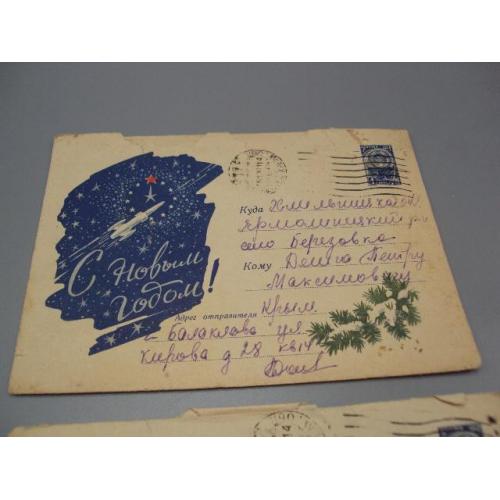 С Новым
годом!
Куда Хмельницкая обл
Ярмолинецкий
село Березовка
Кому Петру
Максимовичу
Адрес отправителя Крым
г. Балаклава ул.
Кирова д 28 кв 14